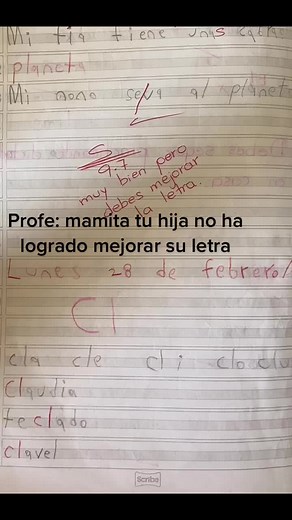 Mi tia tiene unas cabras
planeta
Mi mono se va al planeta
S
9.7
muy bien pero
debes mejorar
la letra.
Profe: mamita tu hija no ha
logrado mejorar su letra
Lunes 28 de febrero
Cl
cla cle cli clo clu
Claudia
teclado
clavel
Scribe